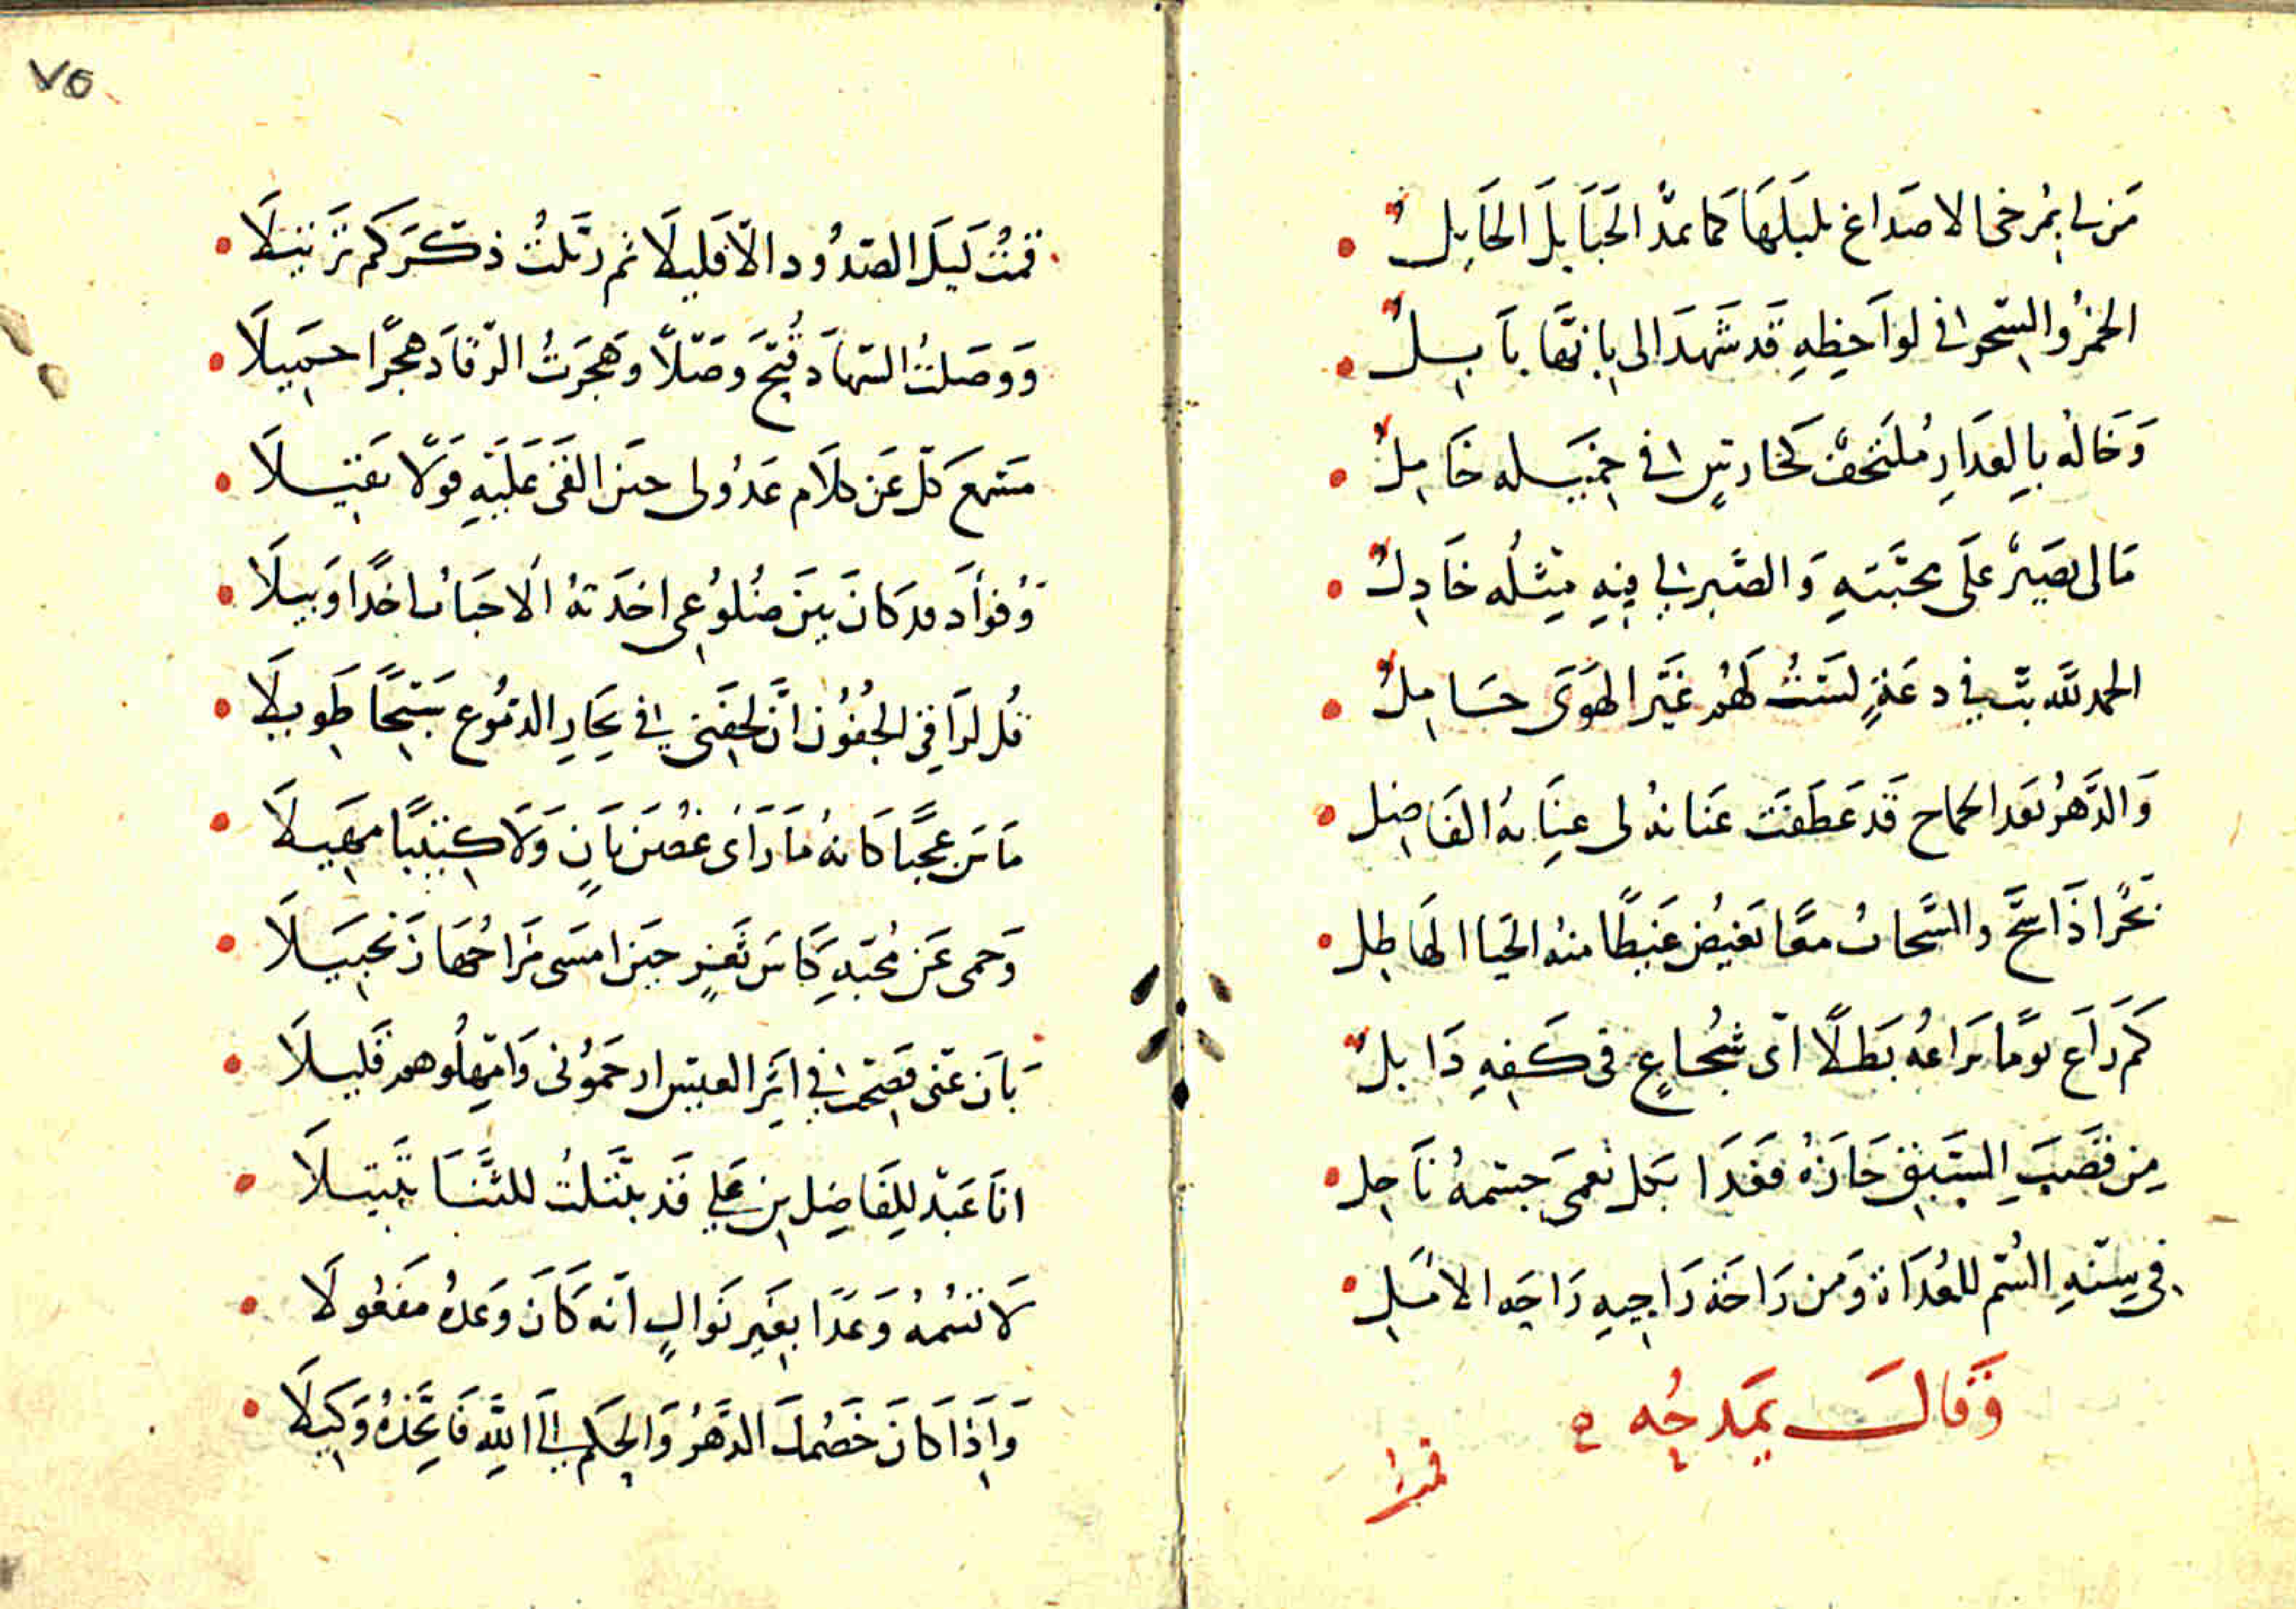 من لي بمرخى الاصداغ بلبلها كما يمد الحبايل الحابل
الخمر والسحر في لواحظه قد شهدا لي بانها بابل
وخاله بالعذار ملتحف كحارس في خميله خامل
مالي نصير على محبته والصبر لي فيه مثله خاذل
الحمد لله بت في دعة لست لهم غير الهوى حامل
والدهر بعد الجماح قد عطفت عنانه لي عناية الفاضل
بحر اذا سح والسحاب معا تفيض غيظا منه الحيا الهاطل
كم راع يوما يراعه بطلا اي شجاع في كفه ذابل
من قصب السبق حازه فغدا بكل نعمى جسمه ناحل
في سنه السم للعداة ومن راحة راجيه راحه الامل
وقال يمدحه
قمت
٧٥
قمت ليل الصدود الا قليلا ثم رتلت ذكركم ترتيلا
ووصلت السهاد قبح وصلا وهجرت الرقاد هجرا جميلا
مسمع كل عن كلام عذولي حين القى عليه قولا ثقيلا
وفؤاد قد كان بين ضلوعي اخذته الاحباب اخذا وبيلا
قل لراقي الجفون ان لجفني في بحار الدموع سبحا طويلا
ماس عجبا كانه ما رأى غصن بان ولا كثيبا مهيلا
وحمى عن محبه كاس ثغر حين امسى مزاجها زنجبيلا
بان عني فصحت في اثر العيس ارحموني وامهلوهم قليلا
انا عبد للفاضل ابن علي قد تبتلت للثنا تبتيلا
لا تسمه وعدا بغير نوال انه كان وعده مفعولا
واذا كان خصمك الدهر والحكم الى الله فاتخذه وكيلا